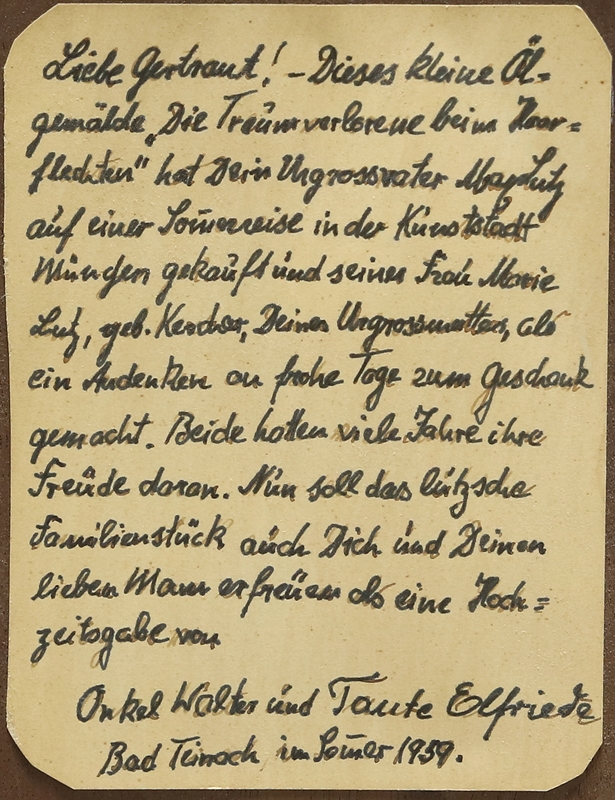 Liebe Gertraut! – Dieses kleine Öl=
gemälde „Die Traumverlorene beim Haar=
flechten“ hat Dein Urgrossvater Max Lutz
auf einer Sommerreise in der Kunststadt
München gekauft und seiner Frau Marie
Lutz, geb. Kercher, Deiner Urgrossmutter, als
ein Andenken an frohe Tage zum Geschenk
gemacht. Beide hatten viele Jahre ihre
Freude daran. Nun soll das lutzsche
Familienstück auch Dich und Deinen
lieben Mann erfreuen als eine Hoch=
zeitsgabe von
Onkel Walter und Tante Elfriede
Bad Teinach im Sommer 1959.